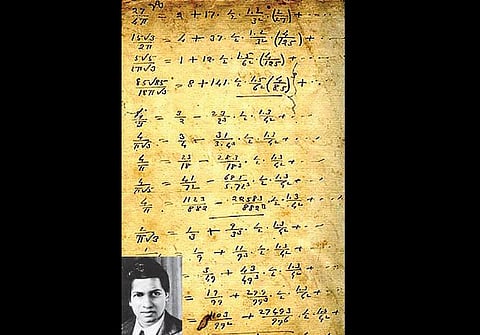 27/4π = 2 + 17 · 1/2 · 1·2/3² (2/27) + ···
15√3/2π = 4 + 37 · 1/2 · 1·2/3² (4/125) + ···
5√5/π√3 = 1 + 12 · 1/2 · 1·5/6² (4/125) + ···
85√85/18π√3 = 8 + 141 · 1/2 · 1·5/6² (4/85) + ···
= 3/2 − 23/2³ · 1/2 · 1·3/4² + ···
4/π√3 = 3/4 − 31/3·4³ · 1/2 · 1·3/4² + ···
4/π = 23/18 − 283/18³ · 1/2 · 1·3/4² + ···
4/π√5 = 41/72 − 685/5·72³ · 1/2 · 1·3/4² + ···
4/π = 1123/882 − 22583/882³ · 1/2 · 1·3/4² + ···
/π√3 = 1/3 + 9/ · 1/2 · 1·3/4² + ···
= 1/9 + 11/9³ · 1/2 · 1·3/4² + ···
= 3/49 + 43/49³ · 1/2 · 1·3/4² + ···
= 19/99 + 299/99³ · 1/2 · 1·3/4² + ···
= 1103/99² + 27493/99⁶ · 1/2 · 1·3/4² + ···